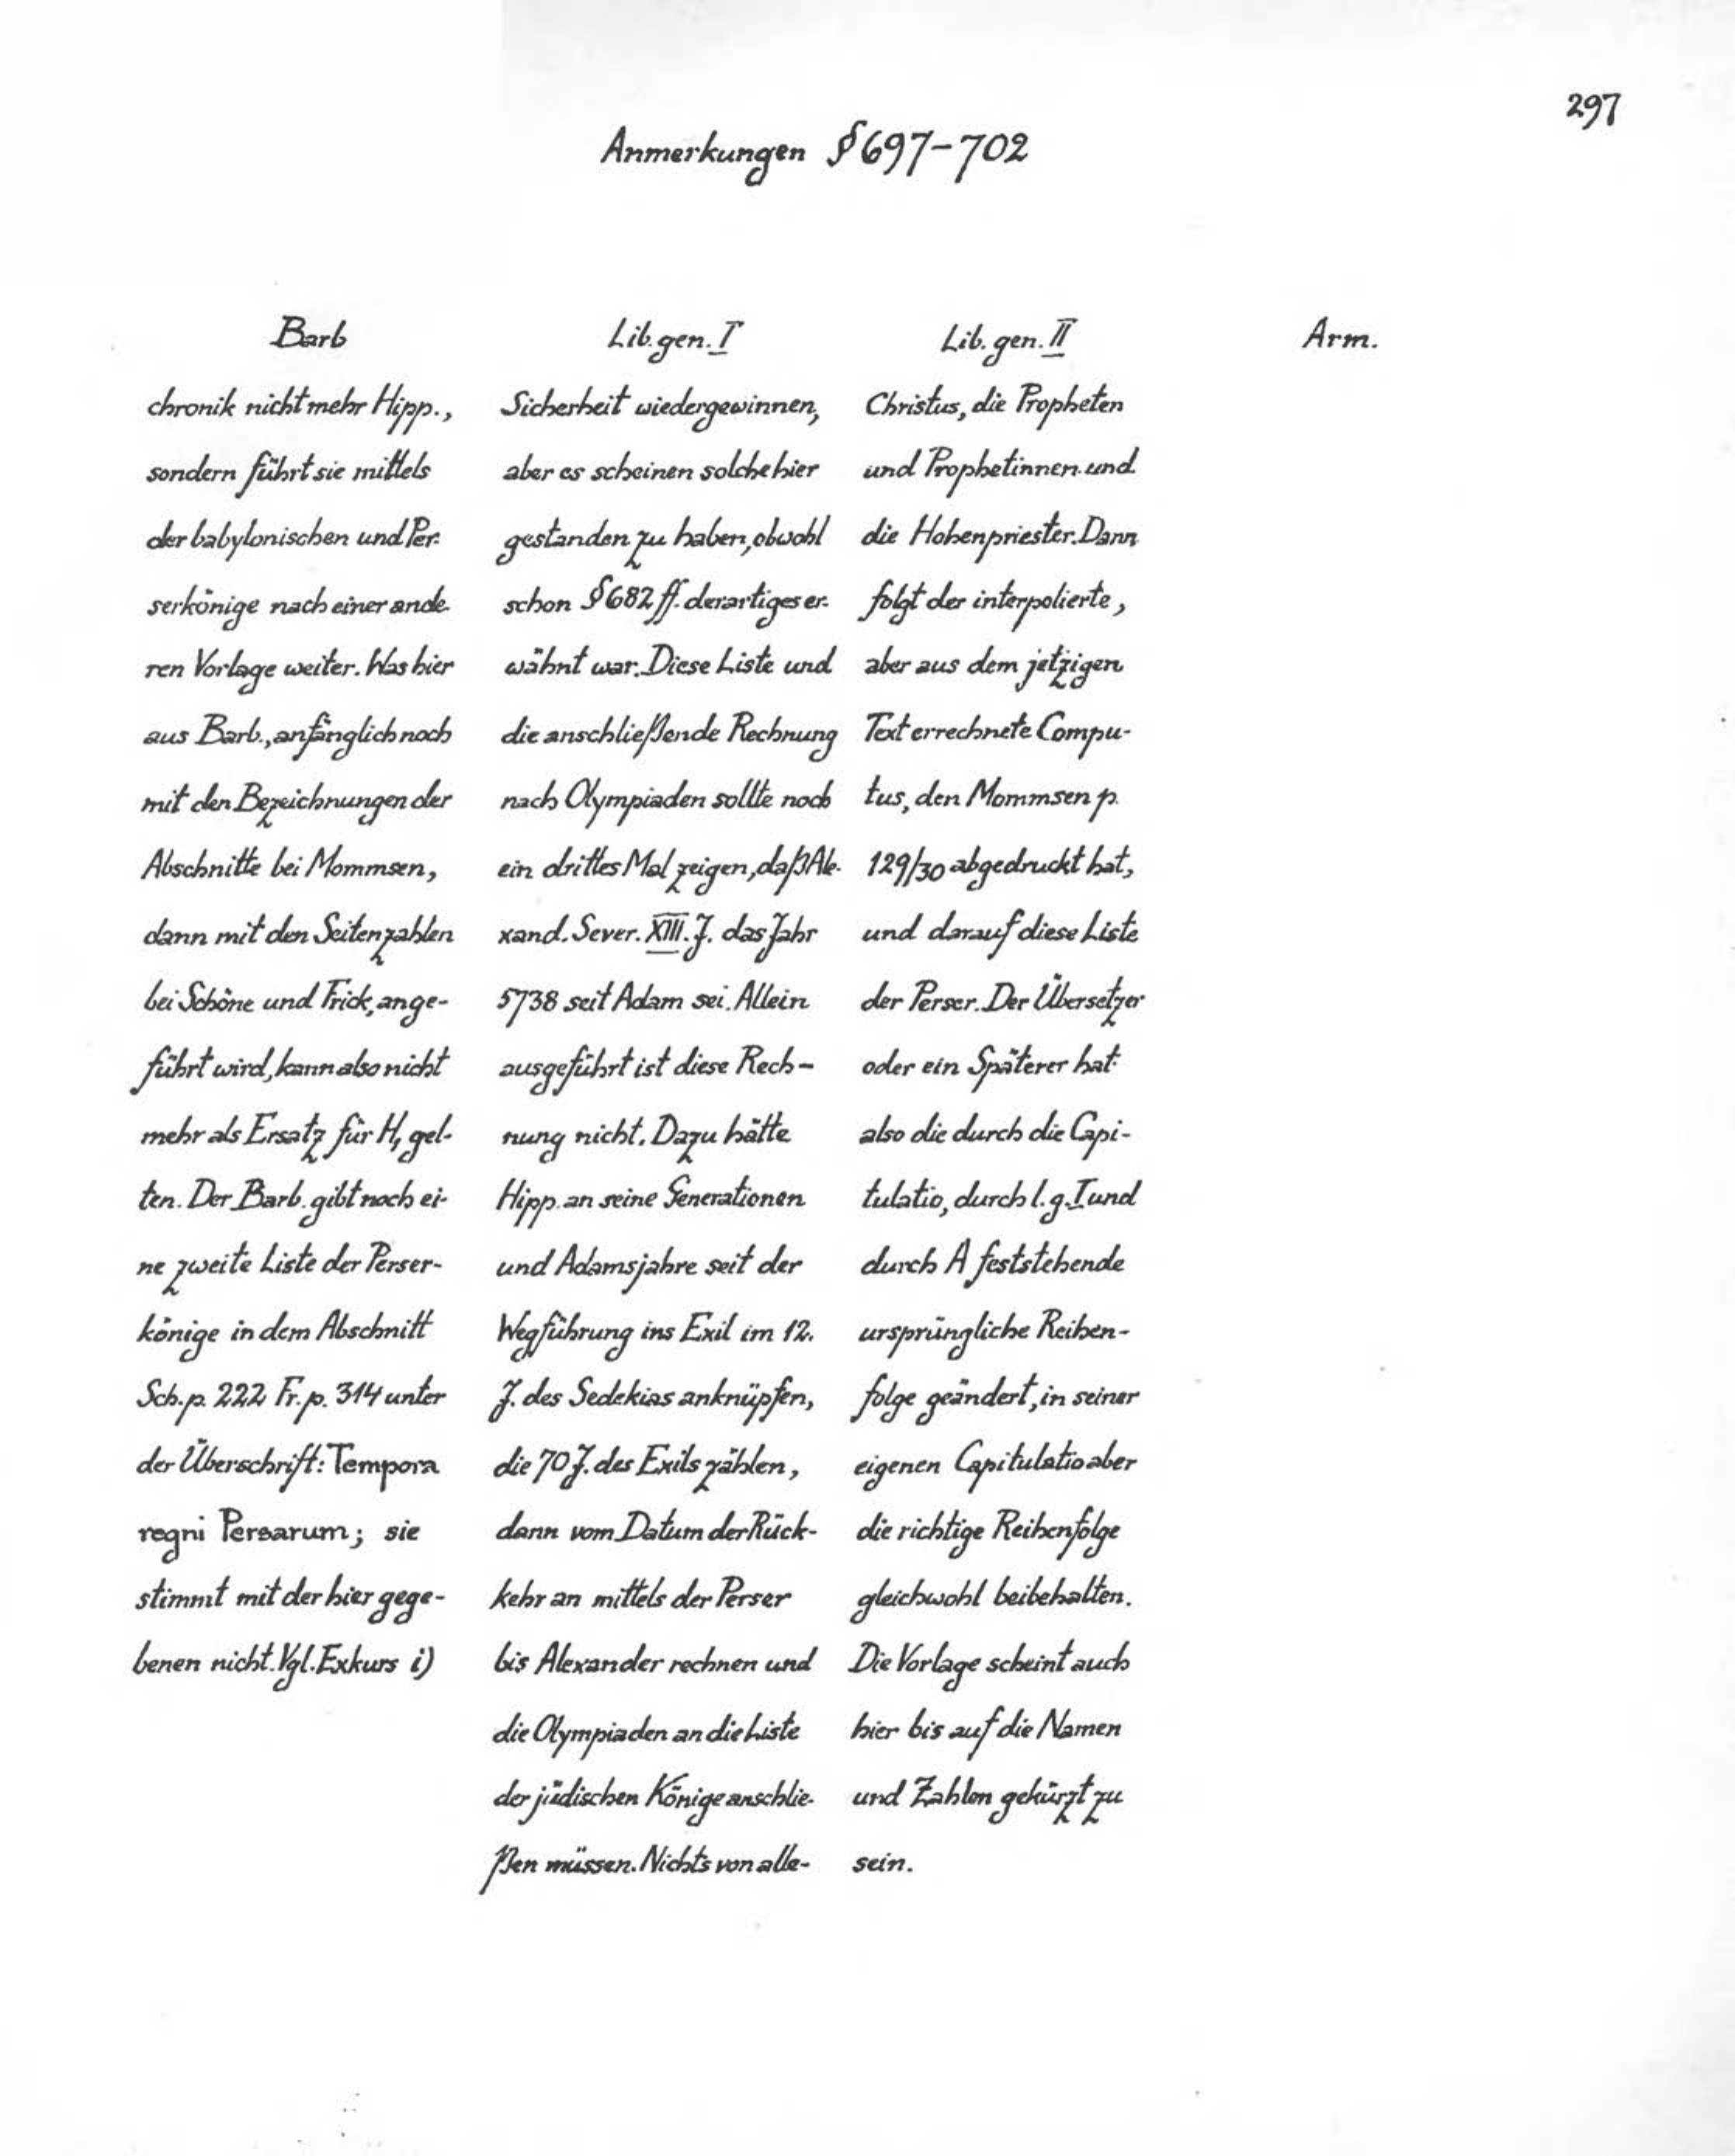 297
Anmerkungen §697-702
Barb
chronik nicht mehr Hipp.,
sondern führt sie mittels
der babylonischen und Per-
serkönige nach einer ande-
ren Vorlage weiter. Was hier
aus Barb., anfänglich noch
mit den Bezeichnungen der
Abschnitte bei Mommsen,
dann mit den Seitenzahlen
bei Schöne und Frick, ange-
führt wird, kann also nicht
mehr als Ersatz für H, gel-
ten. Der Barb. gibt noch ei-
ne zweite Liste der Perser-
könige in dem Abschnitt
Sch. p. 222 Fr. p. 314 unter
der Überschrift: Tempora
regni Persarum; sie
stimmt mit der hier gege-
benen nicht. Vgl. Exkurs i)
Lib. gen. I
Sicherheit wiedergewinnen,
aber es scheinen solche hier
gestanden zu haben, obwohl
schon §682 ff. derartiges er-
wähnt war. Diese Liste und
die anschließende Rechnung
nach Olympiaden sollte noch
ein drittes Mal zeigen, daß Ale-
xand. Sever. XIII. J. das Jahr
5738 seit Adam sei. Allein
ausgeführt ist diese Rech-
nung nicht. Dazu hätte
Hipp. an seine Generationen
und Adamsjahre seit der
Wegführung ins Exil im 12.
J. des Sedekias anknüpfen,
die 70 J. des Exils zählen,
dann vom Datum der Rück-
kehr an mittels der Perser
bis Alexander rechnen und
die Olympiaden an die Liste
der jüdischen Könige anschlie-
ßen müssen. Nichts von alle-
Lib. gen. II
Christus, die Propheten
und Prophetinnen und
die Hohenpriester. Dann
folgt der interpolierte,
aber aus dem jetzigen
Text errechnete Compu-
tus, den Mommsen p.
129/30 abgedruckt hat,
und darauf diese Liste
der Perser. Der Übersetzer
oder ein Späterer hat
also die durch die Capi-
tulatio, durch l. g. I und
durch A feststehende
ursprüngliche Reihen-
folge geändert, in seiner
eigenen Capitulatio aber
die richtige Reihenfolge
gleichwohl beibehalten.
Die Vorlage scheint auch
hier bis auf die Namen
und Zahlen gekürzt zu
sein.
Arm.